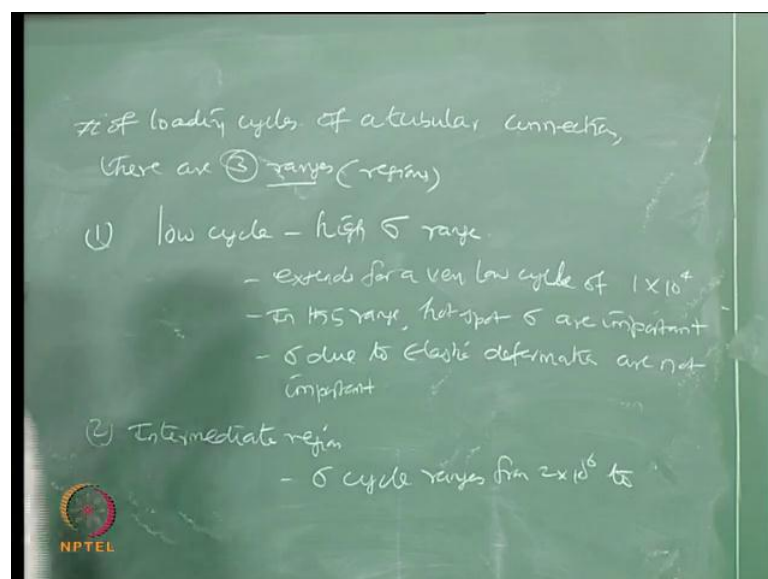 # of loading cycles of a tubular connection,
there are ③ ranges (regions)
(1) low cycle - high σ range
- extends for a very low cycle of 1 x 10⁴
- In this range, hot spot σ are important
- σ due to elastic deformation are not
important
(2) Intermediate region
- σ cycle ranges from 2x10⁶ to
NPTEL